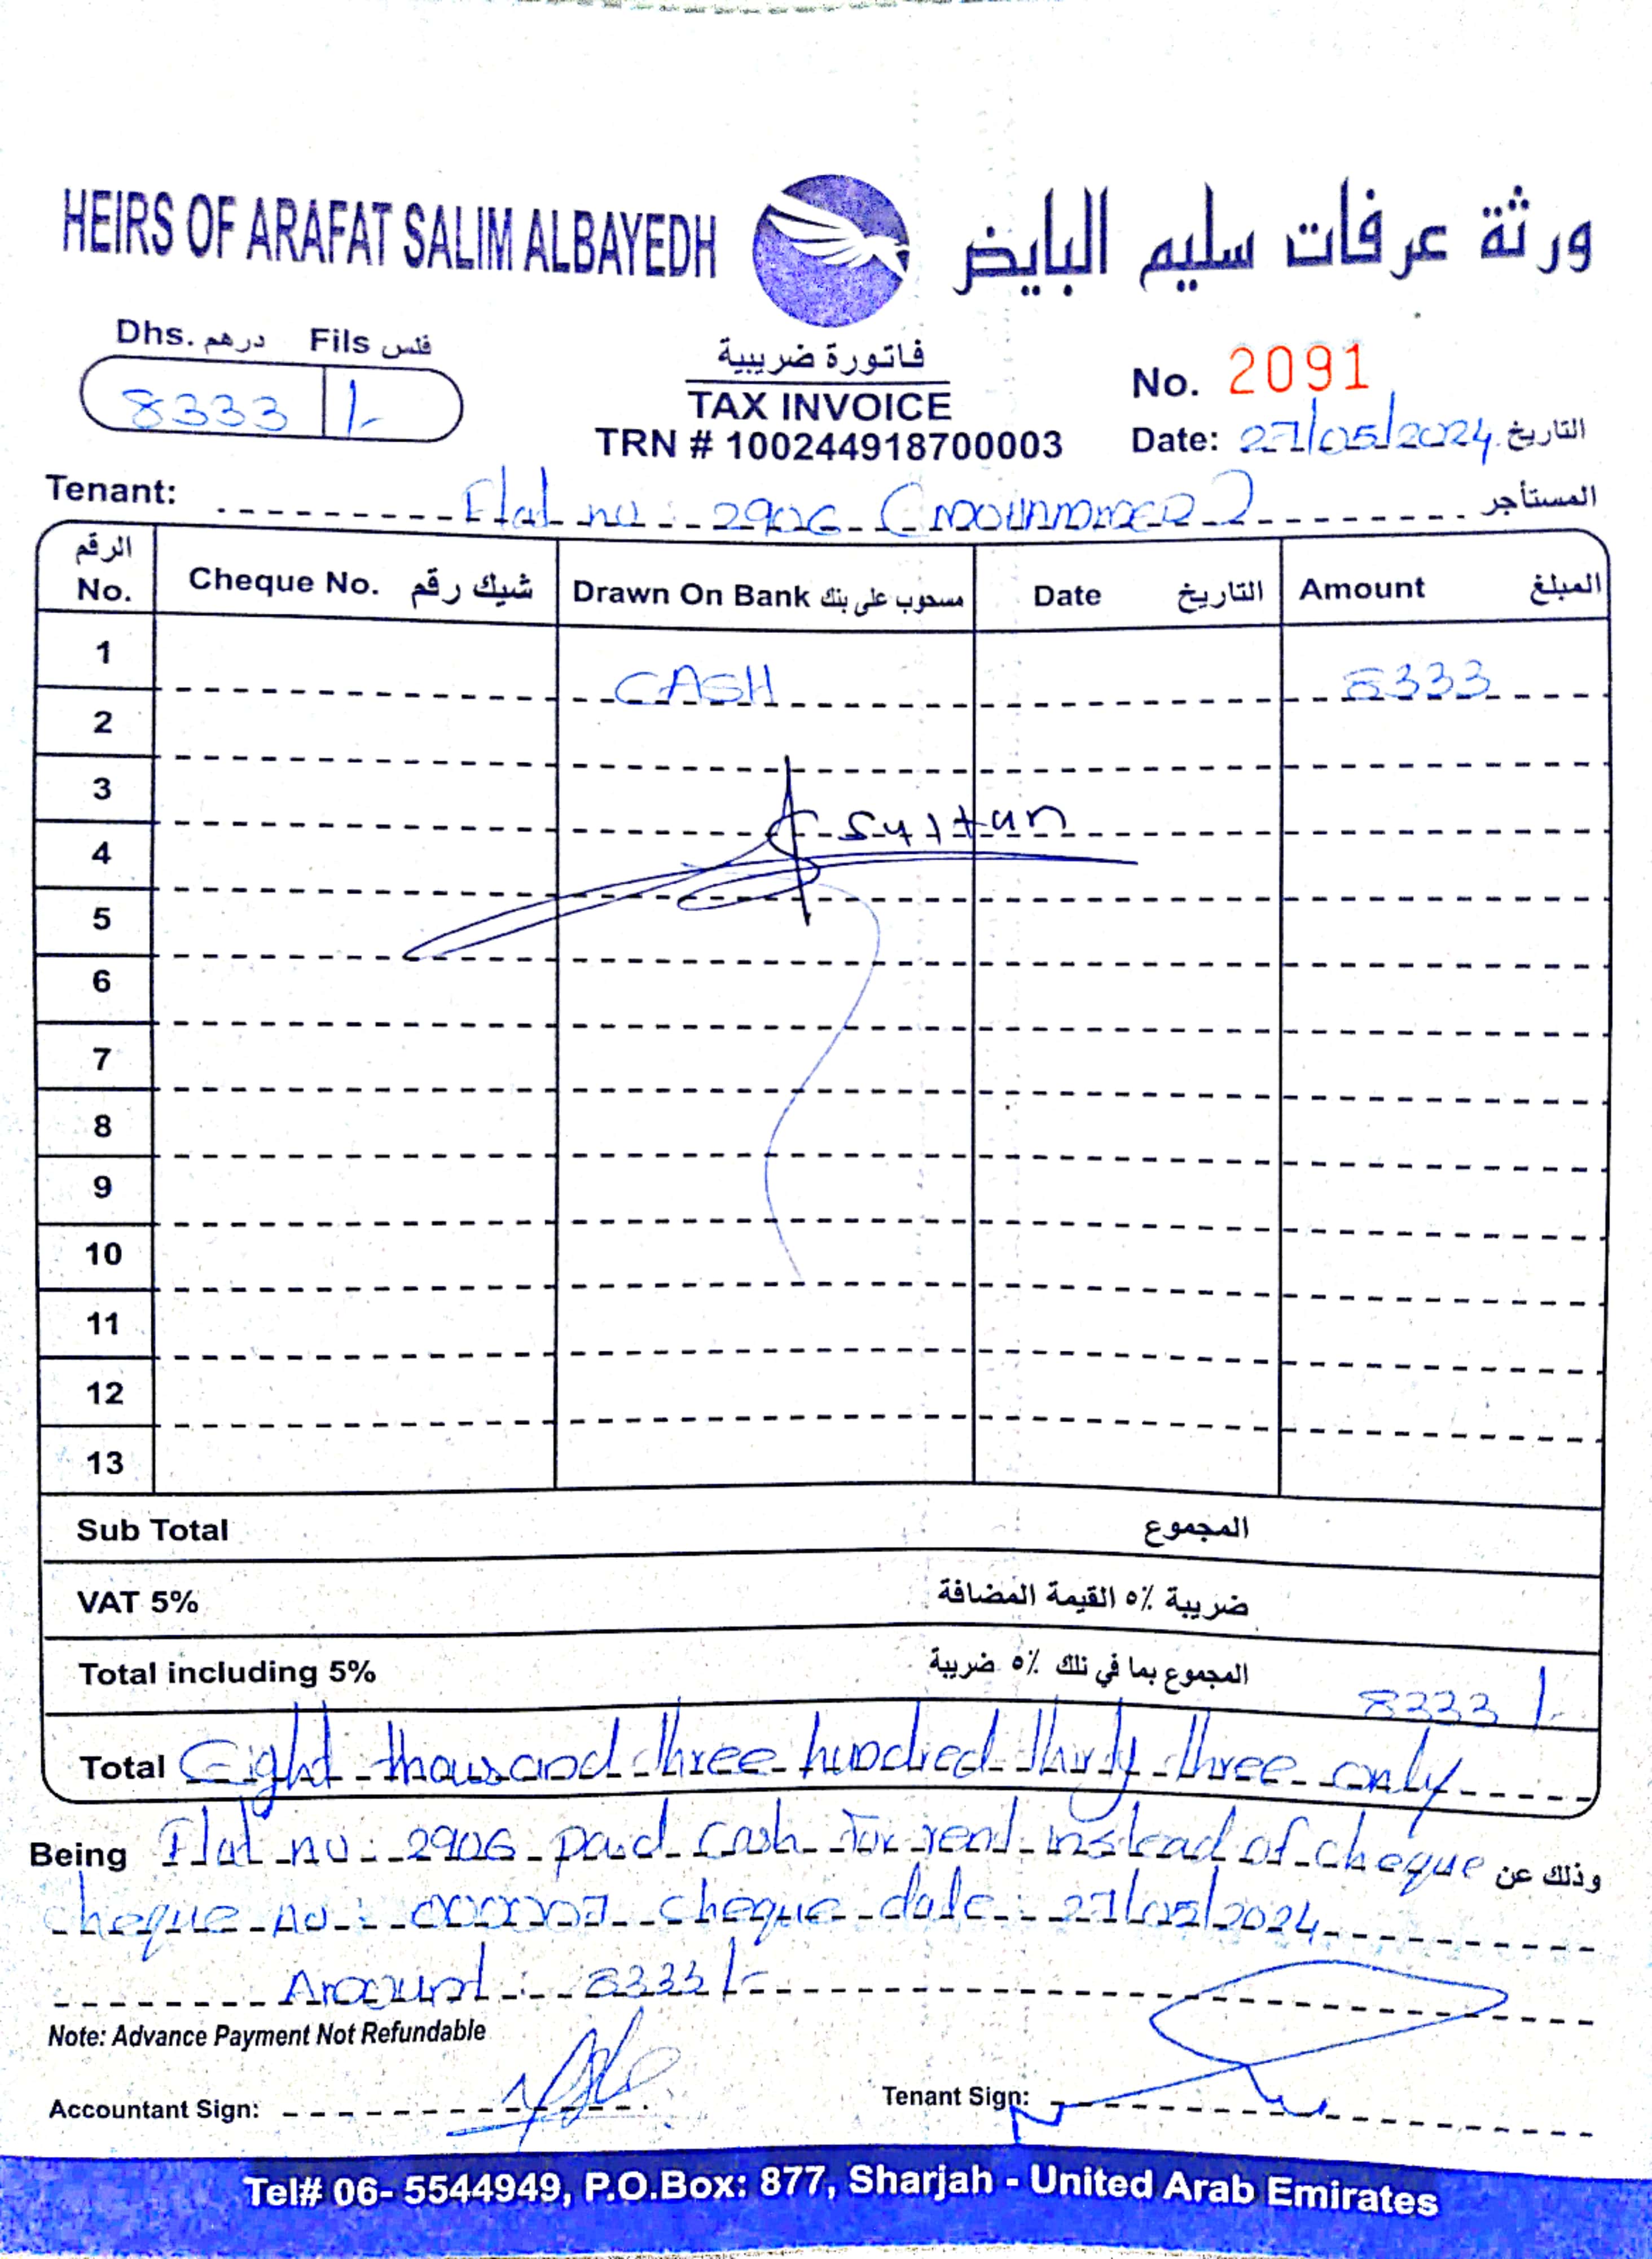 HEIRS OF ARAFAT SALIM ALBAYEDH ورثة عرفات سليم البايض
Dhs. درهم Fils فلس
8333 /-
فاتورة ضريبية
TAX INVOICE
TRN # 100244918700003
No. 2091
Date: 27/05/2024 التاريخ
Tenant: Flat no: 2906 المستأجر
الرقم No. Cheque No. شيك رقم Drawn On Bank مسحوب على بنك Date التاريخ Amount المبلغ
1 CASH 8333
2
3
4 Sultan
5
6
7
8
9
10
11
12
13
Sub Total المجموع
VAT 5% ضريبة ٥٪ القيمة المضافة
Total including 5% المجموع بما في ذلك ٥٪ ضريبة 8333 /-
Total Eight thousand three hundred thirty three only
Being Flat no: 2906 paid cash for rent instead of cheque وذلك عن
cheque no: 000007 cheque date: 27/05/2024
Amount: 8333/-
Note: Advance Payment Not Refundable
Accountant Sign: Tenant Sign:
Tel# 06- 5544949, P.O.Box: 877, Sharjah - United Arab Emirates